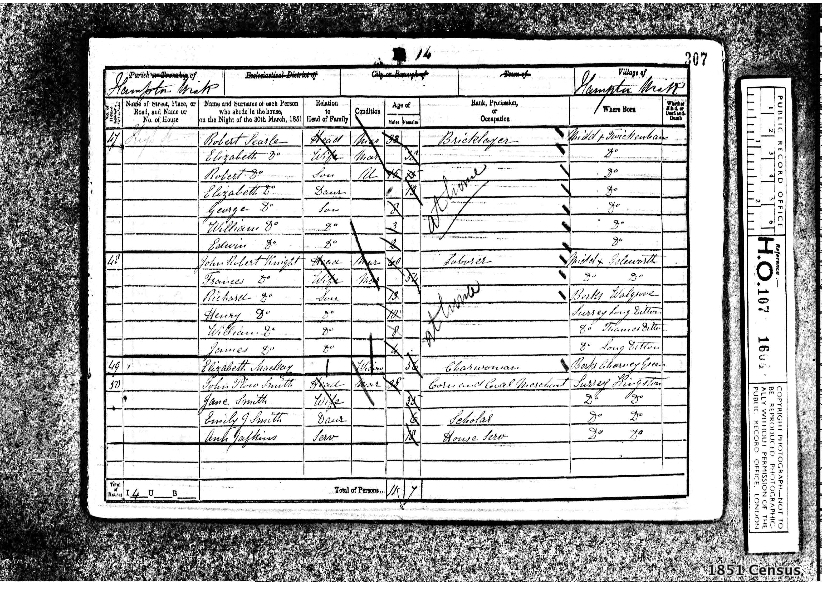 14
307
Parish or Township of Ecclesiastical District of City or Borough of Town of Village of
Hampton Wick Hampton Wick
Name of Street, Place, or Road, and Name or No. of House
Name and Surname of each Person who abode in the house, on the Night of the 30th March, 1851
Relation to Head of Family
Condition
Age of
Males Females
Rank, Profession, or Occupation
Where Born
Whether Blind, or Deaf-and-Dumb
47 Robert Searle Head Mar Bricklayer Midd x Twickenham
Elizabeth Do Wife Mar Do
Robert Do Son Do
Elizabeth Do Daur Do
George Do Son Do
William Do Do 3 Do
Edwin Do Do Do
at home
48 John Robert Knight Head Mar Laborer Midd x Isleworth
Frances Do Wife Mar Do Do
Richard Do Son Berks
Henry Do Do Surrey Long Ditton
William Do Do 8 Do Thames Ditton
James Do Do Do Long Ditton
at home
49 Elizabeth Charwoman Berks
50 John Smith Head Mar Corn and Coal Merchant Surrey Kingston
Jane Smith Wife Do Do
Emily J Smith Daur Scholar Do Do
Ann Serv House Serv Do Do
Total of Houses I 4 U B
Total of Persons 7
PUBLIC RECORD OFFICE
Reference:-
H.O. 107
COPYRIGHT PHOTOGRAPH—NOT TO BE REPRODUCED PHOTOGRAPHICALLY WITHOUT PERMISSION OF THE PUBLIC RECORD OFFICE, LONDON
1851 Census